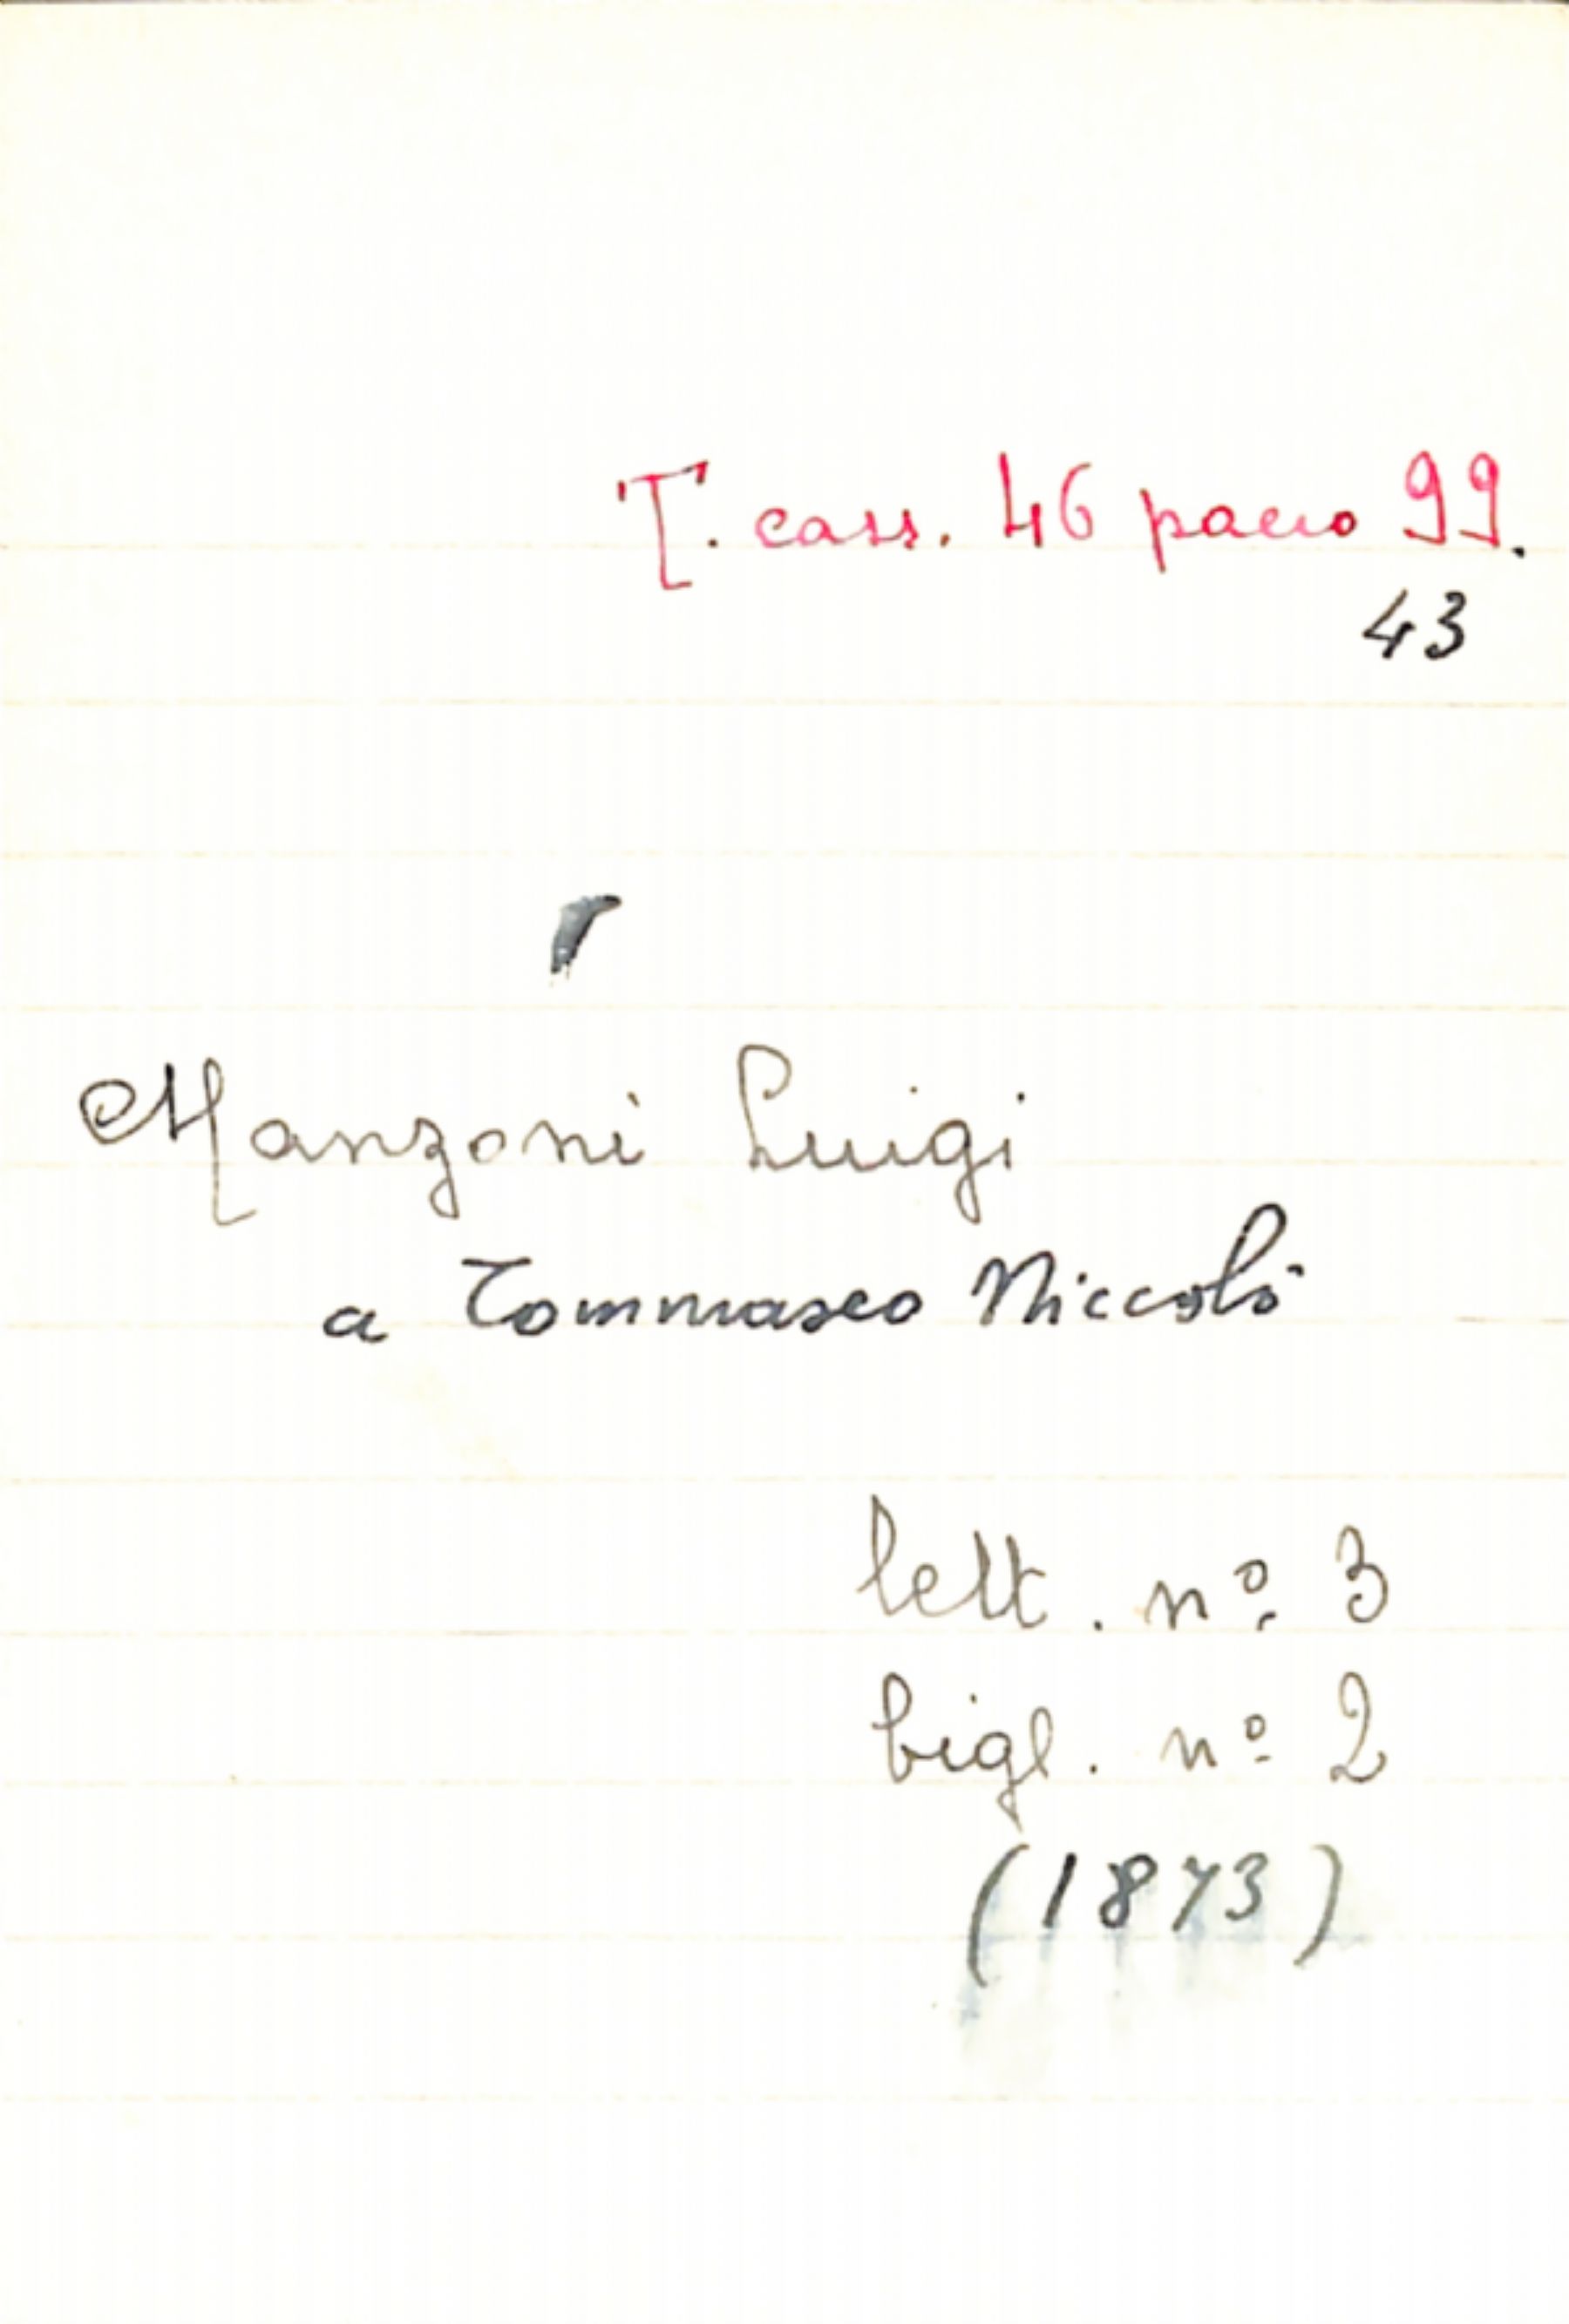 T. cass. 46 pacco 99.
43
Manzoni Luigi
a Tommaseo Niccolò
lett. nº 3
bigl. nº 2
(1873)